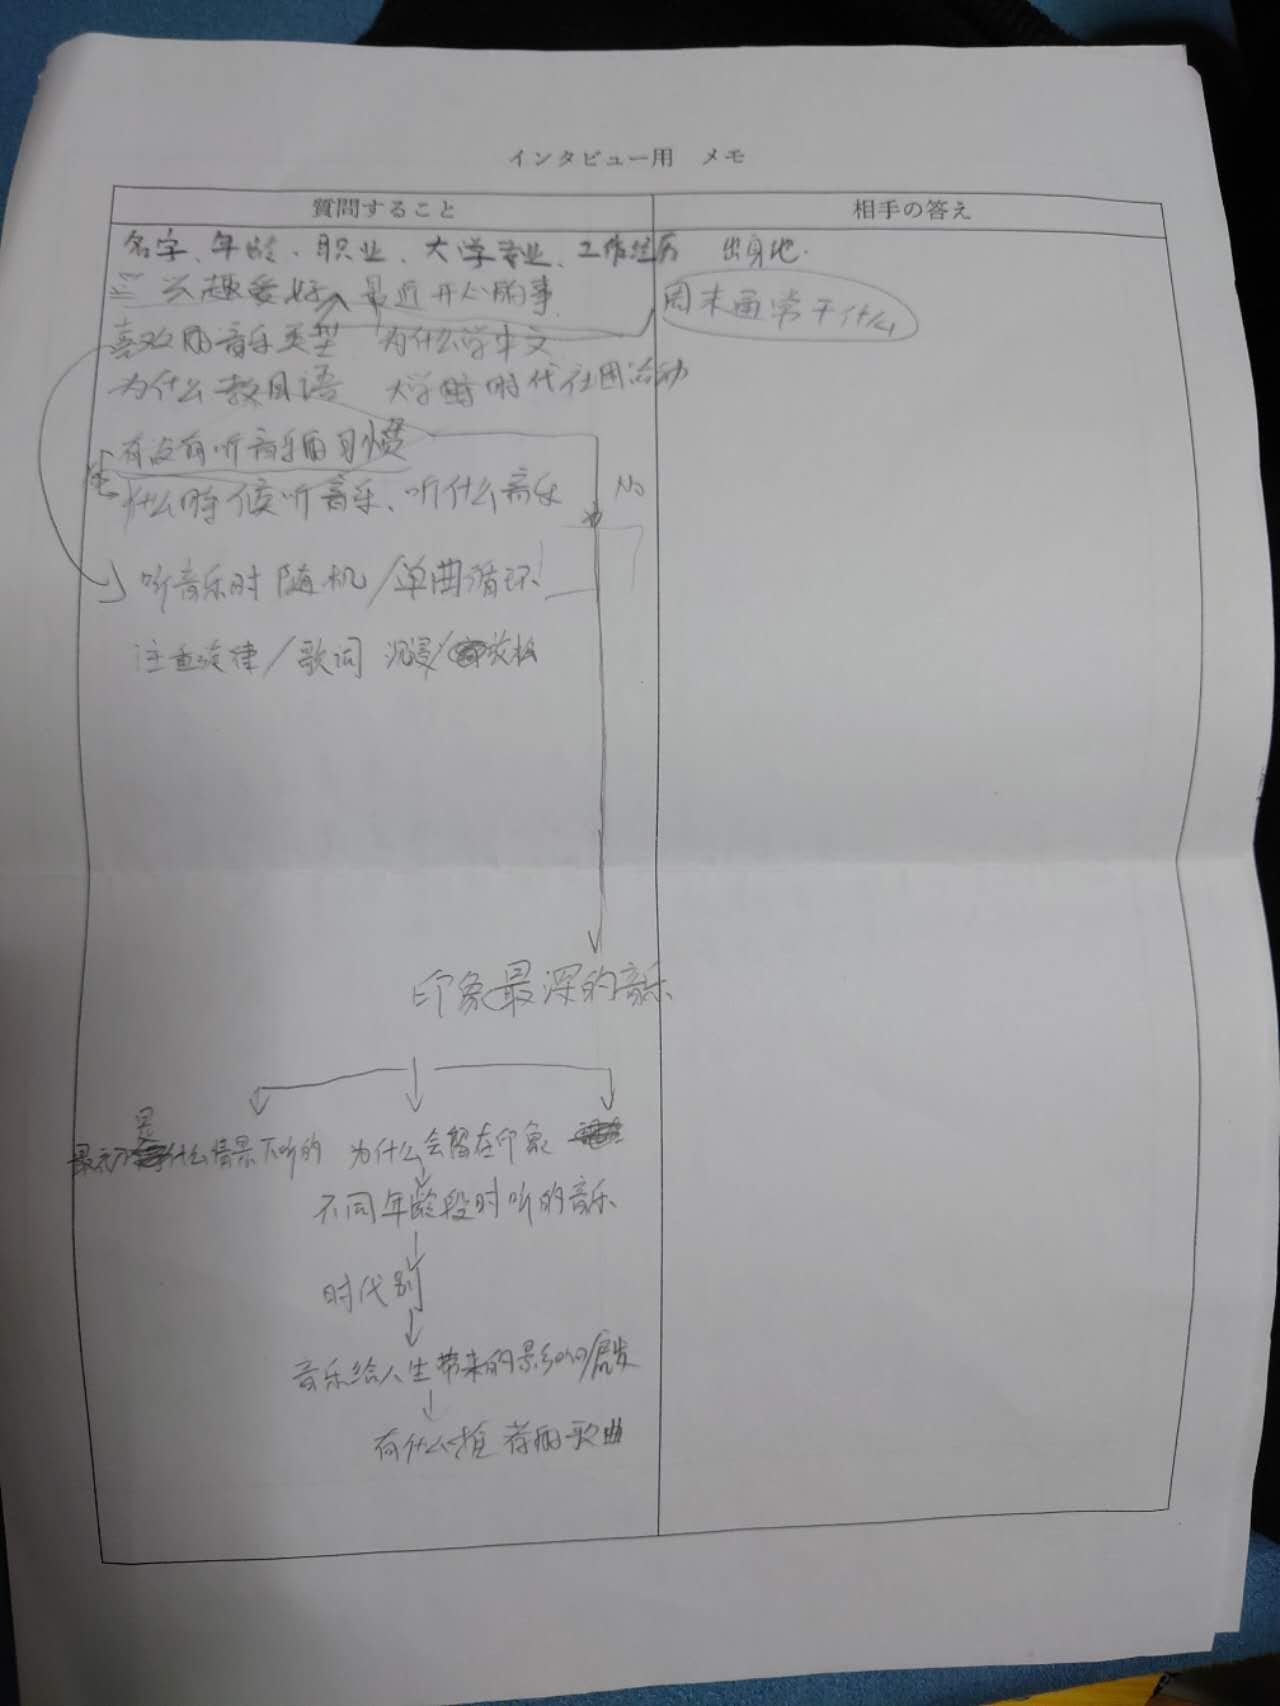 インタビュー用 メモ
質問すること 相手の答え
名字、年龄、职业、大学专业、工作经历 出身地.
兴趣爱好 最近开心的事 周末通常干什么
喜欢的音乐类型 为什么学中文
为什么教日语 大学时代社团活动
有没有听音乐的习惯
什么时候听音乐、听什么音乐 No
听音乐时 随机/单曲循环
注重旋律/歌词 沉浸/放松
印象最深的音乐
是
最初什么情景下听的 为什么会留在印象
不同年龄段时听的音乐
时代别
音乐给人生带来的影响/启发
有什么推荐的歌曲